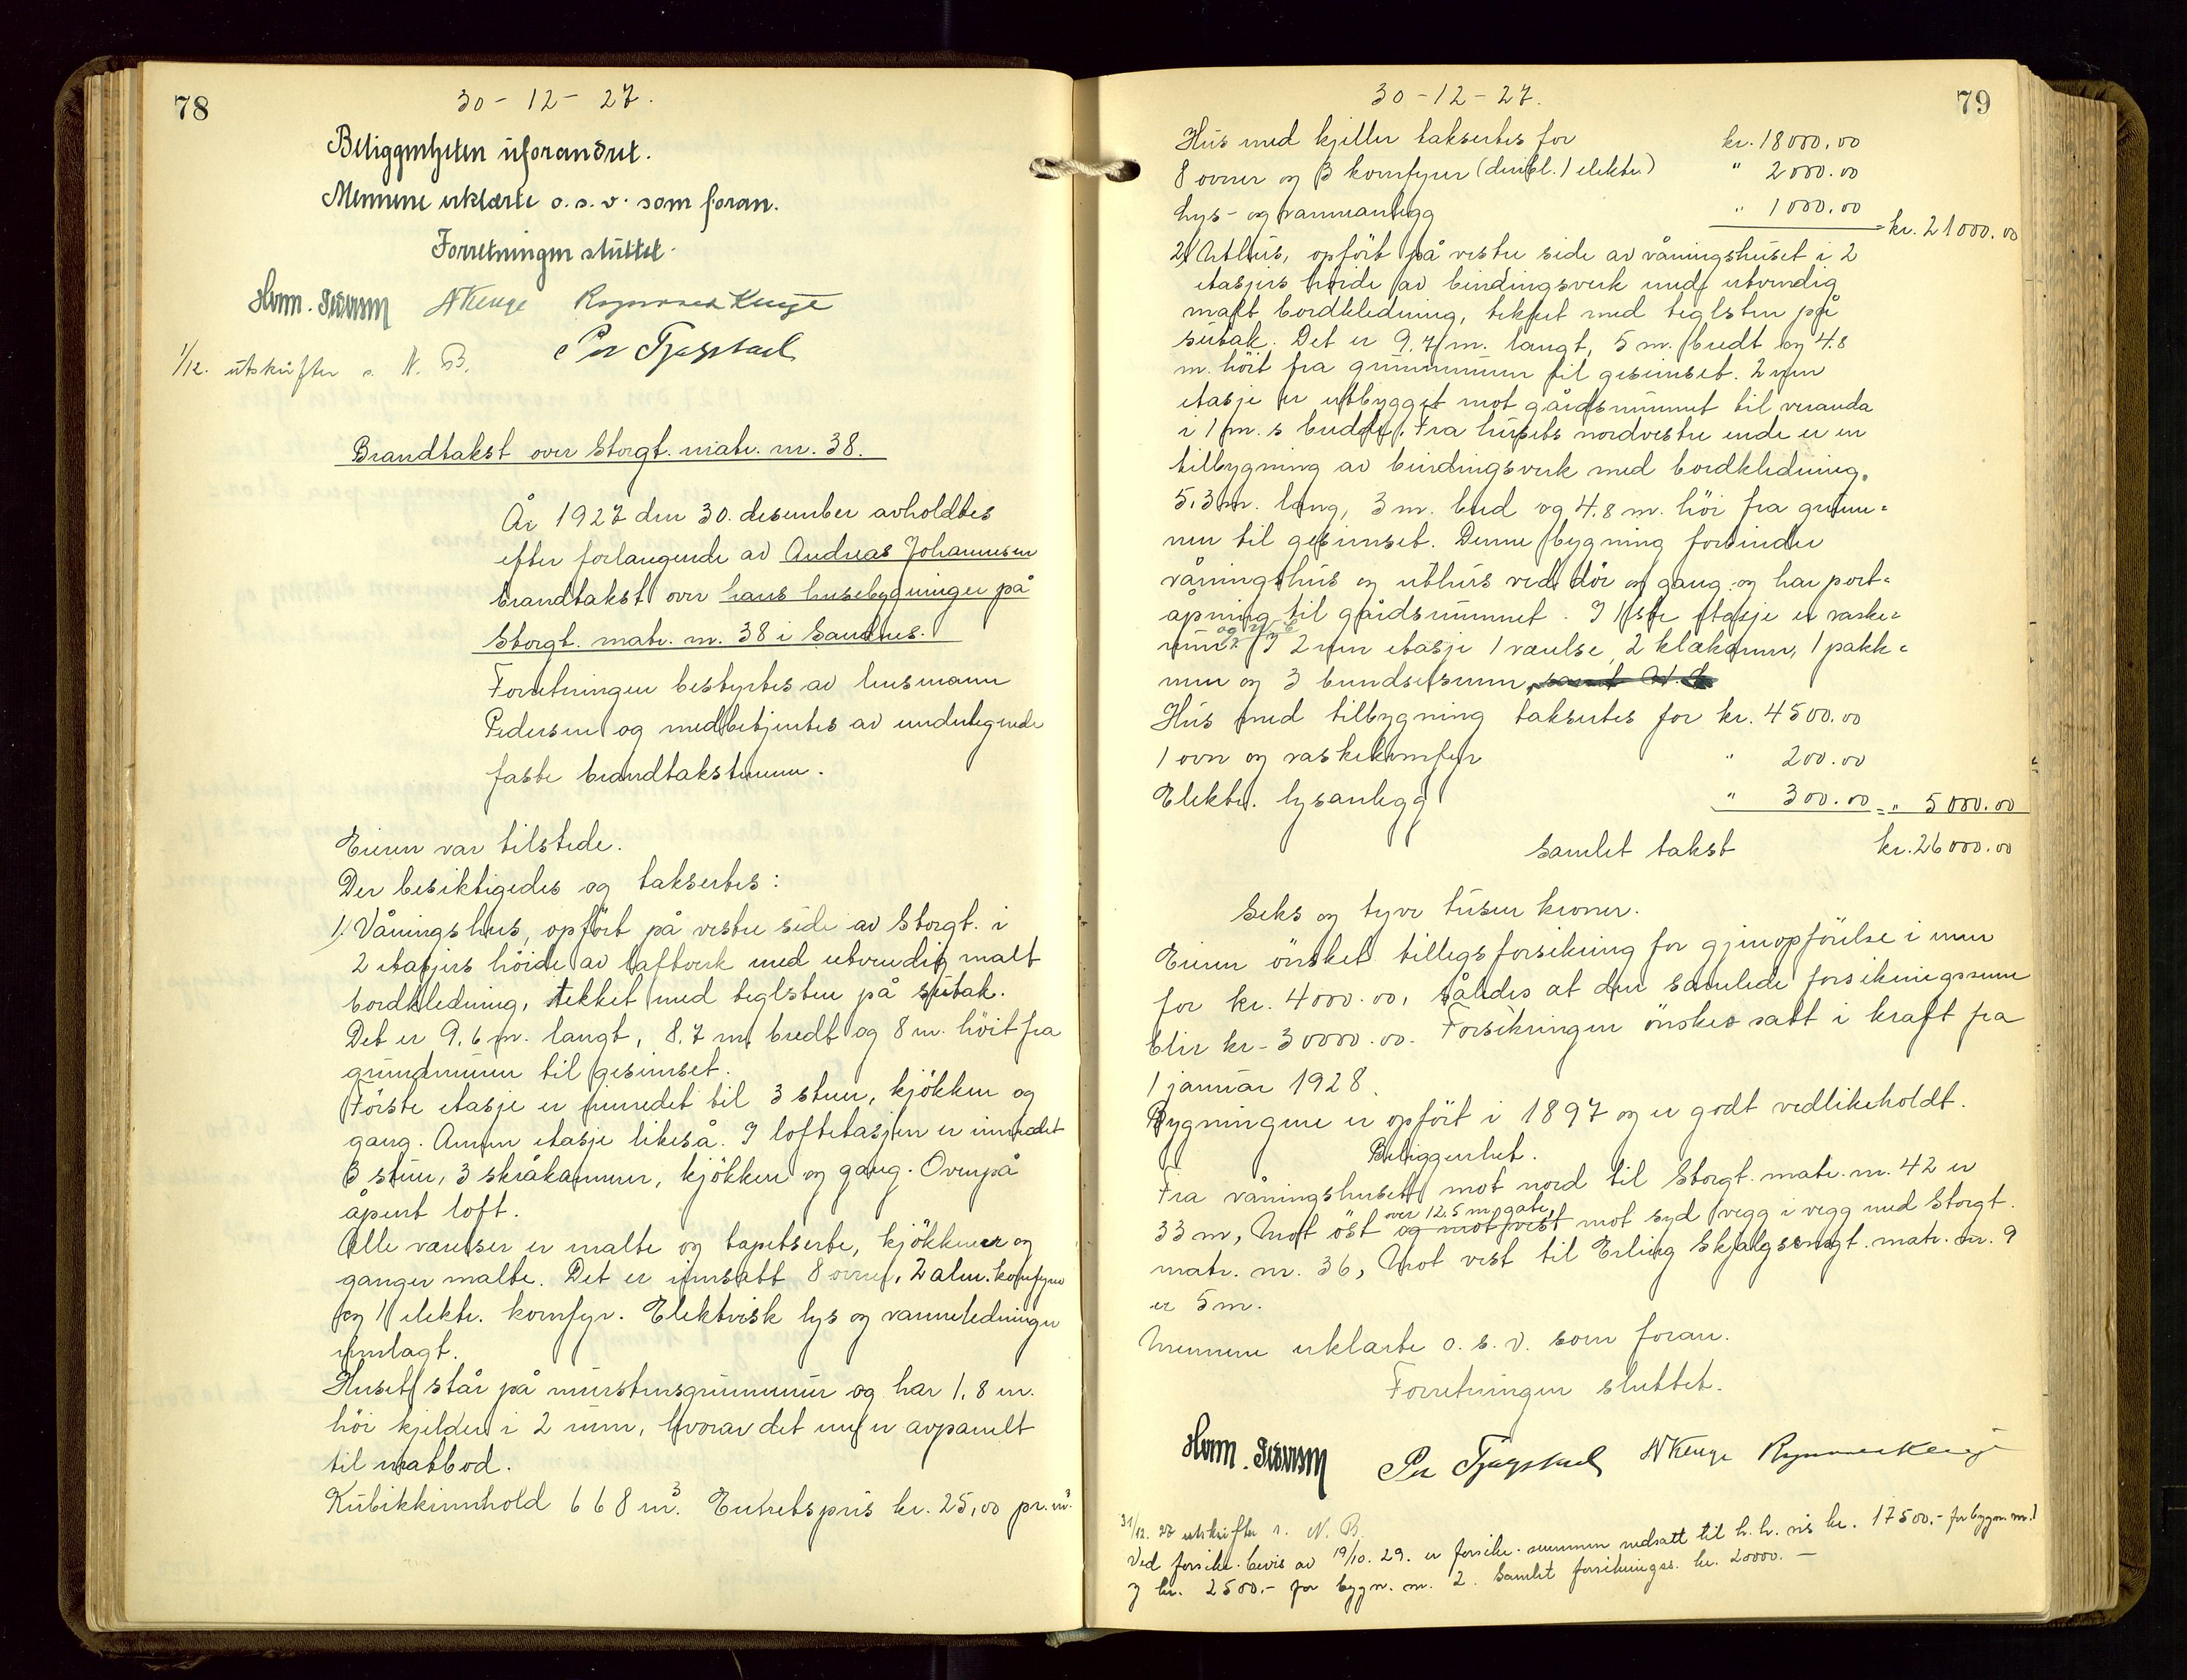 78
30 - 12 - 27.
Beliggenheten uforandret.
Mennene erklærte o. s. v. som foran.
Forretningen sluttet.
1/12. utskrifter s. N. B.
Brandtakst over Storgt. matr. nr. 38.
År 1927 den 30. desember avholdtes
efter forlangende av Andreas Johannesen
brandtakst over hans husebygninger på
Storgt. matr. nr. 38 i Sandnes.
Forretningen bestyrtes av lensmann
Pedersen og medbetjentes av undertegnede
faste brandtakstmenn.
Eieren var tilstede.
Der besiktigedes og taksertes:
1). Våningshus, opført på vestre side av Storgt. i
2 etasjers höide av laftverk med utvendig malt
bordkledning, tekket med teglsten på sutak.
Det er 9,6 m. langt, 8,7 m. bredt og 8 m. höit fra
grundmuren til gesimset.
Förste etasje er innredet til 3 stuer, kjökken og
gang. Annen etasje likeså. I loftetasjen er innredet
3 stuer, 3 skråkammer, kjökken og gang. Ovenpå
åpent loft.
Alle værelser er malte og tapetserte, kjökkener og
ganger malte. Det er innsatt 8 ovner, 2 alm. komfyrer
og 1 elektr. komfyr. Elektrisk lys og vannledninger
innlagt.
Huset står på murstensgrunnmur og har 1,8 m.
höi kjelder i 2 rum, hvorav det ene er avpanelt
til matbod.
Kubikkinnhold 668 m³. Enhetspris kr. 25,00 pr. m³.
79
30 - 12 - 27.
Hus med kjeller taksertes for kr. 18000.00
8 ovner og 3 komfyrer (deribl. 1 elektr.) " 2000.00
Lys- og vannanlegg " 1000.00 = kr. 21000.00
2) Uthus, opfört på vestre side av våningshuset i 2
etasjers höide av bindingsverk med utvendig
malt bordkledning, tekket med teglsten på
sutak. Det er 9.7 m. langt, 5 m. bredt og 4.8
m. höit fra grunnmuren til gesimset. 2nen
etasje er utbygget mot gårdsrummet til veranda
i 1 m.s bredde. Fra husets nordvestre ende er en
tilbygning av bindingsverk med bordkledning,
5,3 m. lang, 3 m. bred og 4.8 m. höi fra grunn-
men til gesimset. Denne bygning forbinder
våningshus og uthus ved dör og gang og har port-
åpning til gårdsrummet. I 1ste etasje er vaske-
rum I 2nen etasje 1 værelse, 2 klækammer, 1 pakk-
rum og 3 brendselsrum, samt
Hus med tilbygning taksertes for kr. 4500.00
1 ovn og vaskekomfyr " 200.00
Elektr. lysanlegg " 300.00 = " 5000.00
Samlet takst kr. 26000.00
Seks og tyve tusen kroner.
Eieren önsket tillegsforsikring for gjenopförelse i mur
for kr. 4000.00, således at den samlede forsikringssum
blir kr. 30000.00. Forsikringen önskes satt i kraft fra
1 januar 1928.
Bygningene er opfört i 1897 og er godt vedlikeholdt.
Beliggenhet.
Fra våningshuset mot nord til Storgt. matr. nr. 42 er
33 m, mot öst over 12,5 m. gate, og mot vest mot syd vegg i vegg med Storgt.
matr. nr. 36, mot vest til Erling Skjalgsöngt. matr. nr. 9
er 5 m.
Mennene erklærte o. s. v. som foran.
Forretningen sluttet.
31/12. 27 utskrifter s. N. B.
Ved forsikr. bevis av 19/10. 29. er forsikr. summen nedsatt til h. h. vis kr. 17500.- for bygn. nr. 1
og kr. 2500.- for bygn. nr. 2. Samlet forsikringss. kr. 20000.-